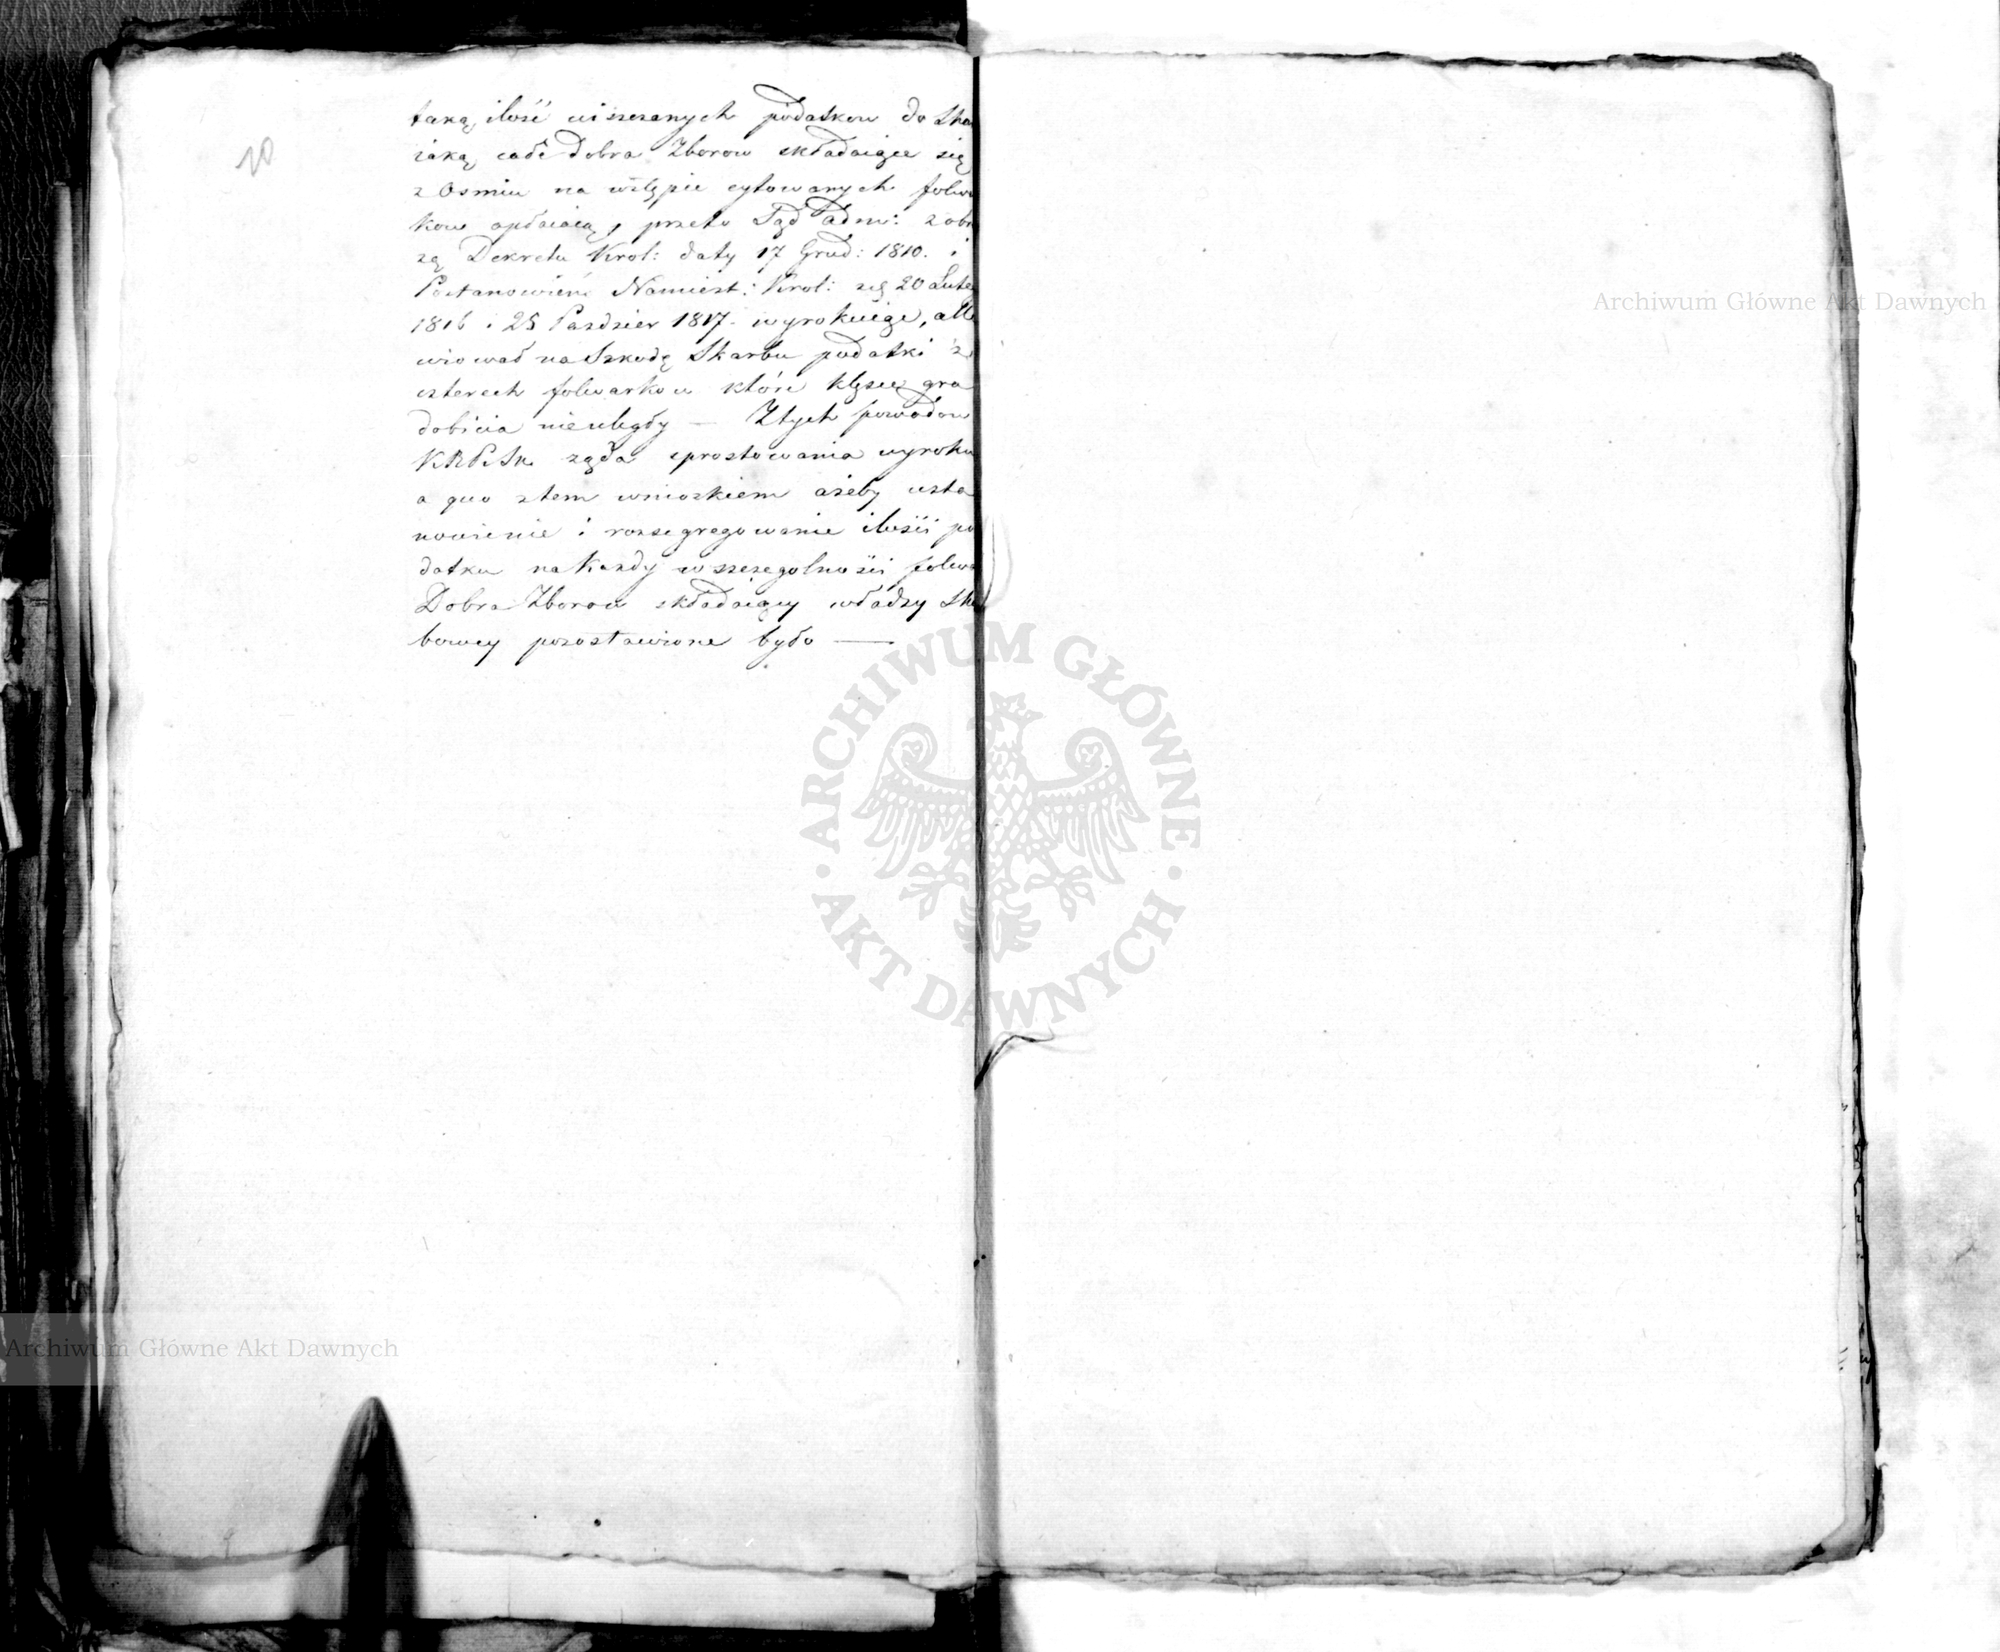 10
taką ilość uiszczanych podatkow do Ska
iaką całe Dobra Zborow składaiące się
z Osmiu na wstępie cytowanych folwa
kow opłaiaią, przeto Sąd adm: z obra
zą Dekretu Krol: daty 17 Grud: 1810. i
Postanowień Namiest: Krol: z 20 Luteg
1816 i 25 Pazdzier 1817. wyrokuiąc, alle
wiował na Szkodę Skarbu podatki z
czterech folwarkow które klęsce gra
dobicia nieuległy — Z tych powodow
KRPiSk. żąda sprostowania wyroku
a quo z tem wnioskiem ażeby usta
nowienie i rozsegregowanie ilości po
datku na każdy w szczegolności folwa
Dobra Zborow składaiący władzy Ska
bowey pozostawione było —
Archiwum Główne Akt Dawnych
ARCHIWUM GŁÓWNE · AKT DAWNYCH ·
Archiwum Główne Akt Dawnych